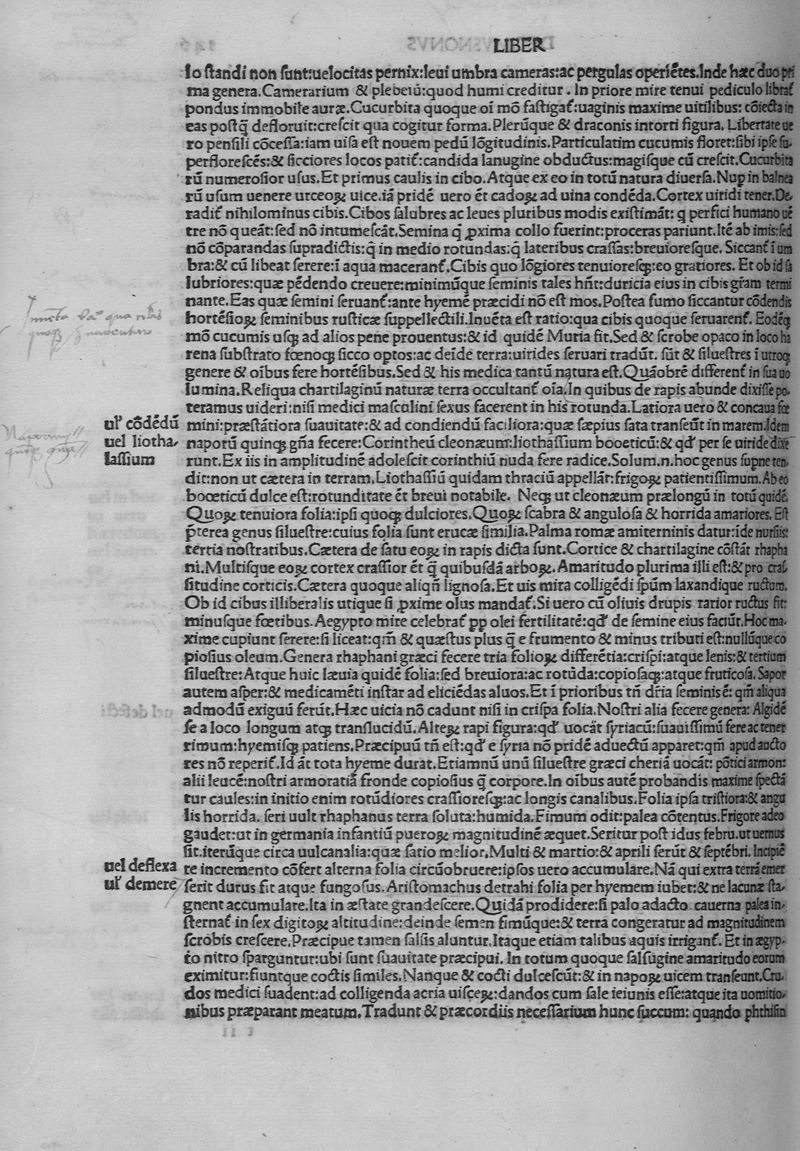 LIBER
lo ſtandi non ſunt:uelocitas pernix:leui umbra cameras:ac pergulas operiẽtes.Inde hæc duo pri
ma genera.Camerarium & plebeiũ:quod humi creditur. In priore mire tenui pediculo librat᷒
pondus immobile auræ.Cucurbita quoque oĩ mõ faſtigat᷒:uaginis maxime uitilibus: cõiecta in
eas poſtq̃ defloruit:creſcit qua cogitur forma.Plerũque & draconis intorti figura. Libertate ue
ro penſili cõceſſa:iam uiſa eſt nouem pedũ lõgitudinis.Particulatim cucumis floret:ſibi ipſe ſu-
perfloreſcẽs:& ſicciores locos patit᷒:candida lanugine obductus:magiſque cũ creſcit.Cucurbita
rũ numeroſior uſus.Et primus caulis in cibo.Atque ex eo in totũ natura diuerſa. Nup in balnea
rũ uſum uenere urceoꝝ uice.iã pridẽ uero ẽt cadoꝝ ad uina condẽda.Cortex uiridi tener.De-
radit᷒ nihilominus cibis.Cibos ſalubres ac leues pluribus modis exiſtimãt: q perfici humano uẽ
tre nõ queãt:ſed nõ intumeſcãt.Semina q ꝓxima collo fuerint:proceras pariunt.Itẽ ab imis:ſed
nõ cõparandas ſupradictis:q̃ in medio rotundas:q̃ lateribus craſſas:breuioreſque. Siccant᷒ ĩ um
bra:& cũ libeat ſerere:ĩ aqua macerant᷒.Cibis quo lõgiores tenuioreſqꝫ:eo gratiores. Et ob id ſa
lubriores:quæ pẽdendo creuere:minimũque ſeminis tales hñt:duricia eius in cibis gr̃am termi
nante.Eas quæ ſemini ſeruant᷒:ante hyemẽ præcidi nõ eſt mos.Poſtea fumo ſiccantur cõdendis
hortẽſioꝝ ſeminibus ruſticæ ſuppellectili.Inuẽta eſt ratio:qua cibis quoque ſeruarent᷒. Eodẽqꝫ
mõ cucumis uſqꝫ ad alios pene prouentus:& id quidẽ Muria fit.Sed & ſcrobe opaco in loco ha
rena ſubſtrato fœnoqꝫ ſicco optos:ac deĩde terra:uirides ſeruari tradũt. ſũt & ſilueſtres ĩ utroqꝫ
genere & oĩbus fere hortẽſibus.Sed & his medica tantũ natura eſt.Quãobrẽ different᷒ in ſua uo
lumina.Reliqua chartilaginũ naturæ terra occultant᷒ oĩa.In quibus de rapis abunde dixiſſe po-
teramus uideri:niſi medici maſculini ſexus facerent in his rotunda.Latiora uero & concaua fœ
mini:præſtãtiora ſuauitate:& ad condiendũ faciliora:quæ ſæpius ſata tranſeũt in marem.Idem
ul᷒ cõdẽdũ
uel liotha-
laſſium
naporũ quinqꝫ gñа fecere:Corintheũ cleonæum:liothaſſium booeticũ:& qđ per ſe uiride dixe
runt.Ex iis in amplitudinẽ adoleſcit corinthiũ nuda fere radice.Solum.n.hoc genus ſupne ten-
dit:non ut cætera in terram.Liothaſſiũ quidam thraciũ appellãt:frigoꝝ patientiſſimum.Ab eo
boœticũ dulce eſt:rotunditate ẽt breui notabile. Neqꝫ ut cleonæum prælongũ in totũ quidẽ.
Quoꝝ tenuiora folia:ipſi quoqꝫ dulciores.Quoꝝ ſcabra & anguloſa & horrida amariores.Eſt
p̃terea genus ſilueſtre:cuius folia ſunt erucæ ſimilia.Palma romæ amiterninis datur:ĩde nurſiis:
tertia noſtratibus.Cætera de ſatu eoꝝ in rapis dicta ſunt.Cortice & chartilagine cõſtãt rhapha
ni.Multiſque eoꝝ cortex craſſior ẽt q̃ quibuſdã arboꝝ.Amaritudo plurima illi eſt:& pro craſ-
ſitudine corticis.Cætera quoque aliqñ lignoſa.Et uis mira colligẽdi ſpũm laxandique ructum.
Ob id cibus illiberalis utique ſi ꝓxime olus mandat᷒.Si uero cũ oliuis drupis rarior ructus fit:
minuſque fœtibus.Aegypto mire celebrat᷒ pp olei fertilitatẽ:qđ de ſemine eius faciũt.Hoc ma-
xime cupiunt ſerere:ſi liceat:qm̃ & quæſtus plus q̃ e frumento & minus tributi eſt:nullũque co
pioſius oleum.Genera rhaphani græci fecere tria folioꝝ differẽtia:criſpi:atque lenis:& tertium
ſilueſtre:Atque huic læuia quidẽ folia:ſed breuiora:ac rotũda:copioſaqꝫ:atque fruticoſa. Sapor
autem aſper:& medicamẽti inſtar ad eliciẽdas aluos.Et ĩ prioribus tñ dr̃ia ſeminis ẽ: qm̃ aliqua
admodũ exiguũ ferũt.Hæc uicia nõ cadunt niſi in criſpa folia.Noſtri alia fecere genera: Algidẽ
ſe a loco longum atqꝫ tranſlucidũ.Alteꝝ rapi figura:qđ uocãt ſyriacũ:ſuauiſſimũ fere ac tener
rimum:hyemiſqꝫ patiens.Præcipuũ tñ eſt:qđ e ſyria nõ pridẽ aduectũ apparet:qm̃ apud aucto
res nõ reperit᷒.Id ãt tota hyeme durat.Etiamnũ unũ ſilueſtre græci cheriã uocãt: põtici armon:
alii leucẽ:noſtri armoratiã fronde copioſius q̃ corpore.In oĩbus autẽ probandis maxime ſpectã
tur caules:in initio enim rotũdiores craſſioreſqꝫ:ac longis canalibus.Folia ipſa triſtiora:& angu
lis horrida. ſeri uult rhaphanus terra ſoluta:humida.Fimum odit:palea cõtentus.Frigore adeo
gaudet:ut in germania infantiũ pueroꝝ magnitudinẽ æquet.Seritur poſt idus febru.ut uernus
ſit.iterũque circa uulcanalia:quæ ſatio melior.Multi & martio:& aprili ſerũt & ſeptẽbri. Incipiẽ
uel deflexa
ul᷒ demere
te incremento cõfert alterna folia circũobruere:ipſos uero accumulare.Nã qui extra terrã emer
ſerit durus fit atque fungoſus.Ariſtomachus detrahi folia per hyemem iubet:& ne lacunæ ſta-
gnent accumulare.Ita in æſtate grandeſcere.Quidã prodidere:ſi palo adacto cauerna palea in-
ſternat᷒ in ſex digitoꝝ altitudine:deinde ſemen fimũque:& terra congeratur ad magnitudinem
ſcrobis creſcere.Præcipue tamen ſalſis aluntur.Itaque etiam talibus aquis irrigant᷒. Et in ægyp-
to nitro ſparguntur:ubi ſunt ſuauitate præcipui. In totum quoque ſalſugine amaritudo eorum
eximitur:fiuntque coctis ſimiles.Nanque & cocti dulceſcũt:& in napoꝝ uicem tranſeunt.Cru-
dos medici ſuadent:ad colligenda acria uiſceꝝ:dandos cum ſale ieiunis eſſe:atque ita uomitio-
nibus præparant meatum.Tradunt & præcordiis neceſſarium hunc ſuccum: quando phthiſin